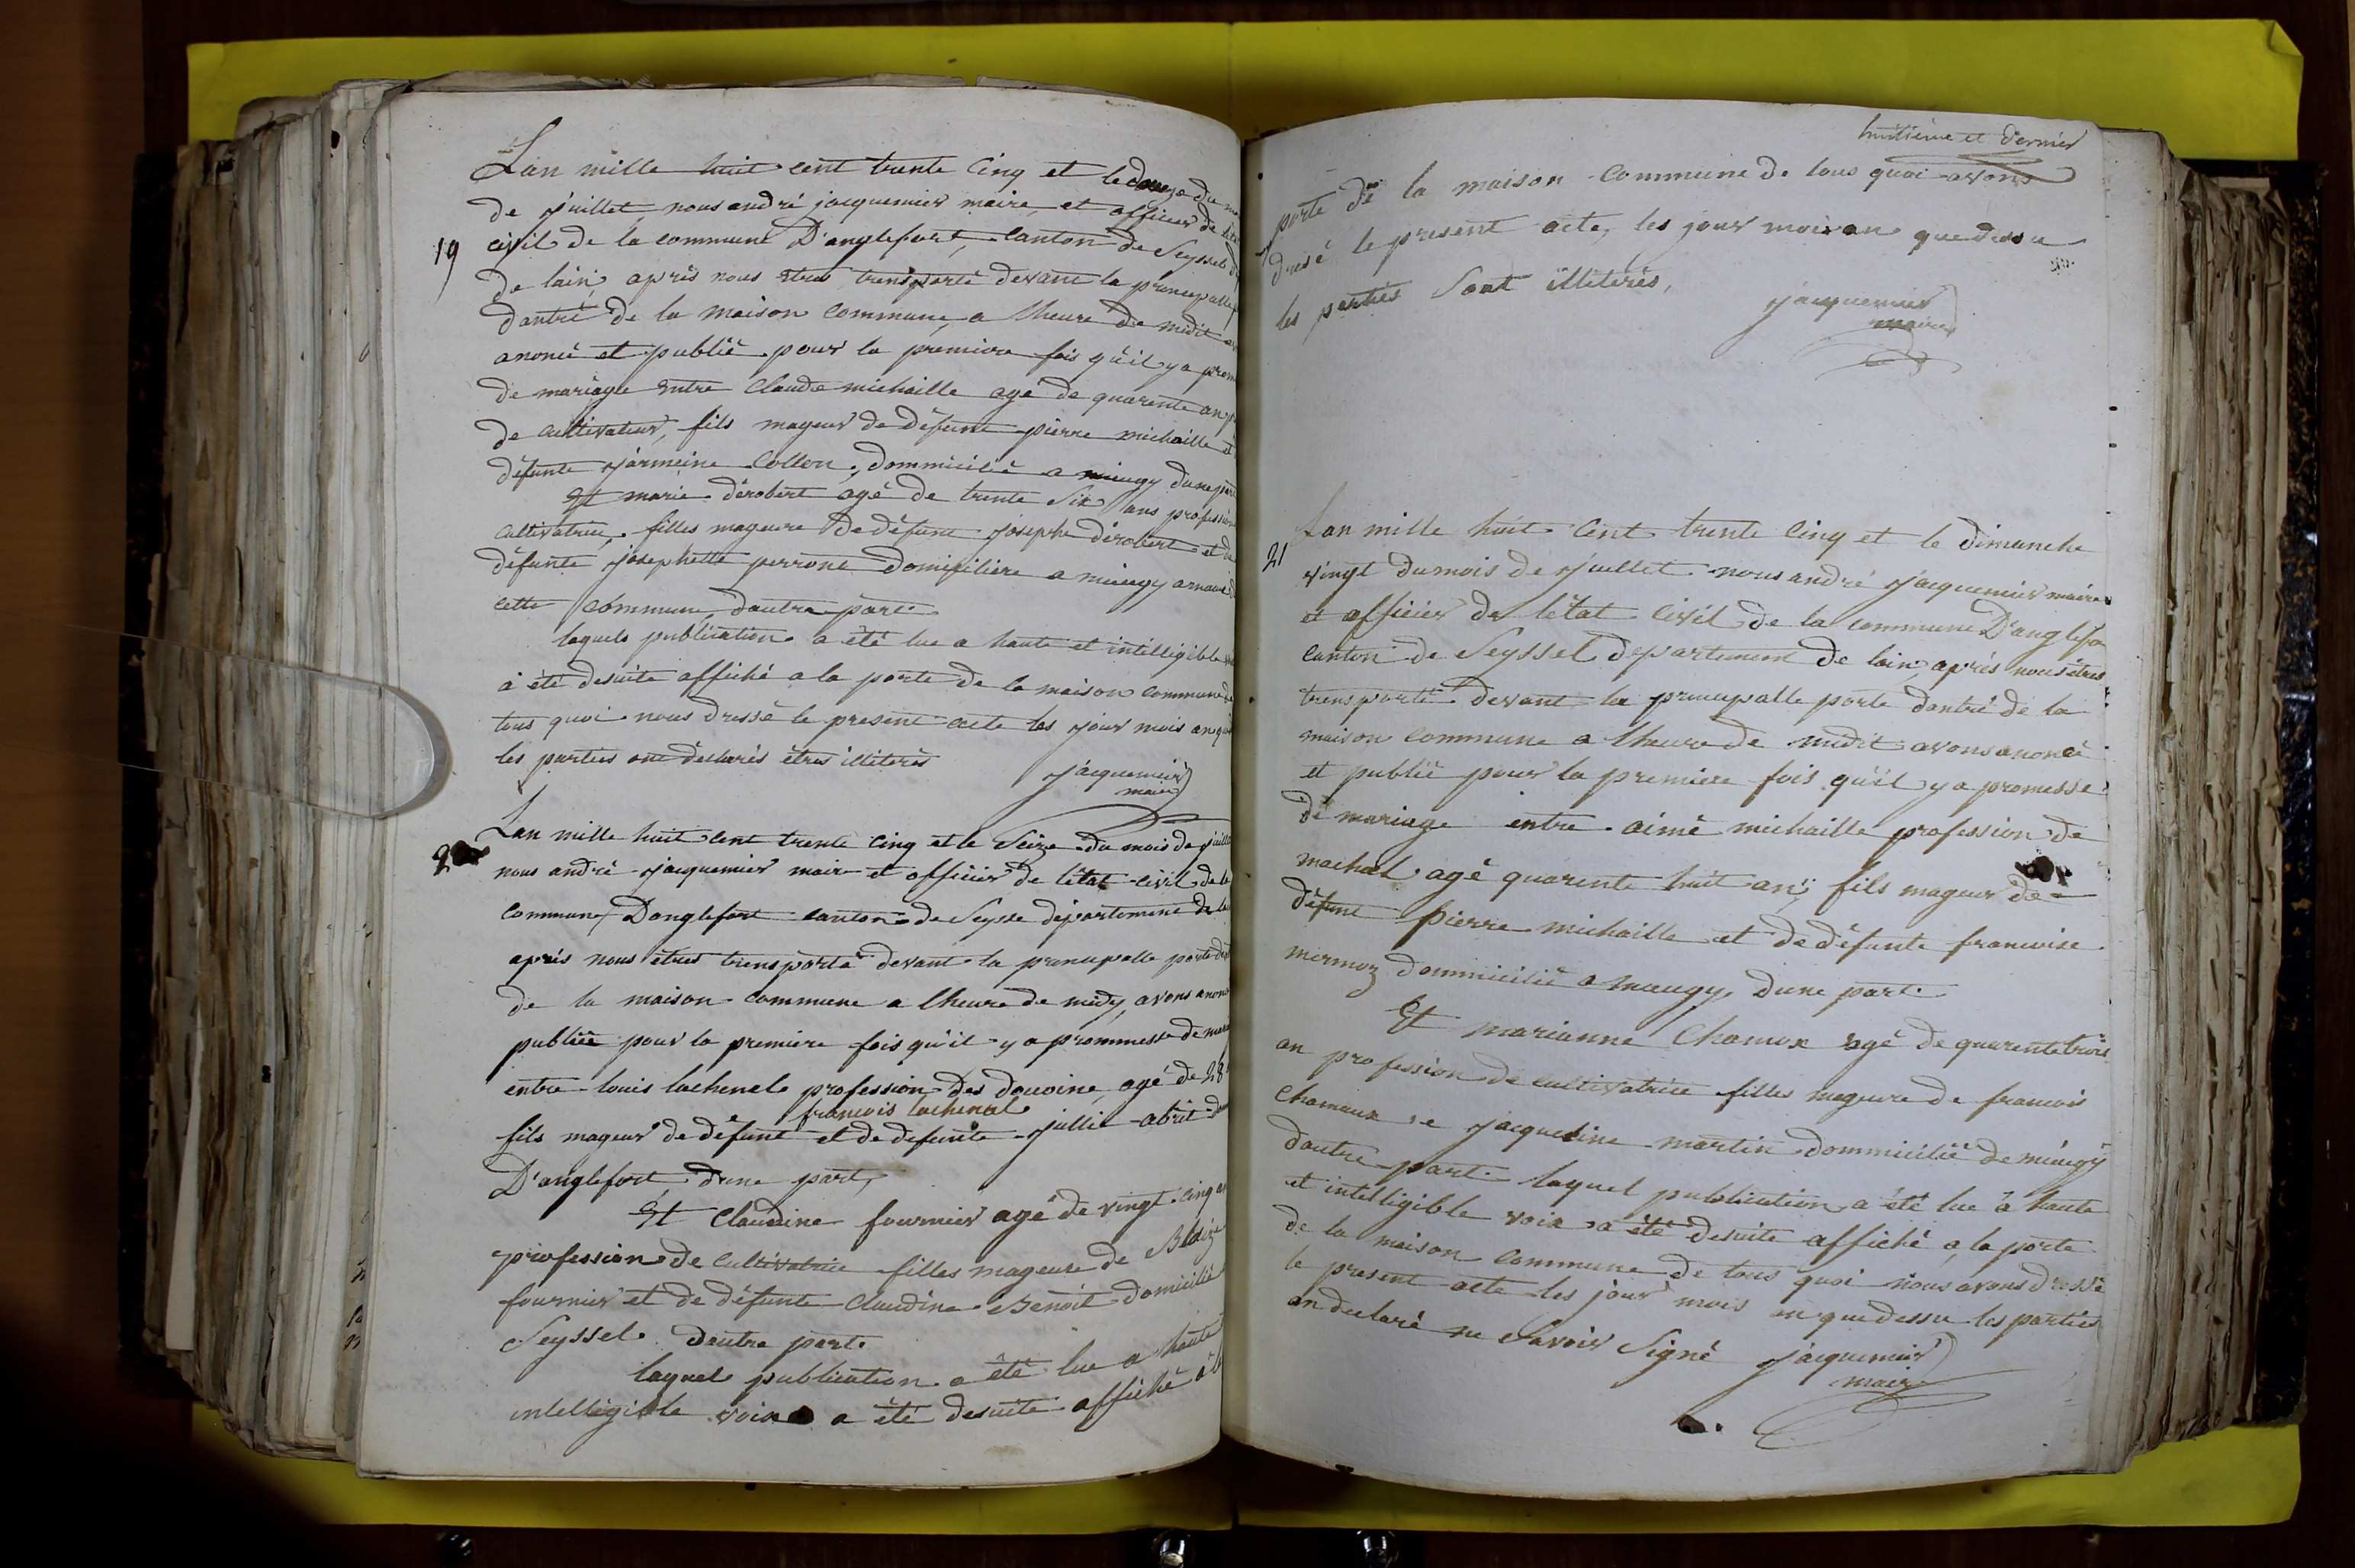 Lan mille huit cent trente cinq et le douze du
de juillet nous andré jacquemier maire et officier de
19
civil de la commune D'anglefort, canton de Seyssel
de lain, après nous êtres transporté devant la principalle
dantré de la maison commune, a lheure de midit
anoncé et publié pour la premiere fois qu'il y a
de mariage entre Claude michaille agé de quarente an
de cultivateur, fils mageur de défunt pierre michaille
défunte jarmeine Collon, dommicilié a miugy dune
Et marie dérobert agé de trente Six ans profession
cultivatrice, filles mageure de défunt josephe dérobert et
défunte josephette perrone domiciliere a miugy
cette commune, dautre part
laquele publication a été lue a haute et intelligible
à été desuite affiché a la porte de la maison commune
tous quoi nous dressé le present acte les jour mois an
les parties ont déclarés êtres illiterés
jacquemier
maire
Lan mille huit cent trente cinq et le Seize du mois de
nous andré jacquemier maire et officier de létat civil de
commune Danglefort canton de Seysse département de
après nous êtres transporté devant la principalle porte
de la maison commune a lheure de midy, avons
publiée pour la premiere fois qu'il y a prommesse de
entre louis lachenele profession des douoine, agé de 28
francois lachenal
fils mageur de défunt et de defunte jullie
D'anglefort dune part,
Et Claudine fournier agé de vingt cinq
profession de cultivatrice filles mageure de Blaize
fournier et de défunte Claudine Benoit domicilié
Seyssel dautre parte
laquel publication a été lue a haute
intelligible voix a été desuite affiché
huitième et dernier
porte de la maison commune de tous quoi avons
dressé le present acte, les jour mois an que dessu
les parties Sont illiterés,
jacquemier
maire
21
Lan mille huit cent trente cinq et le dimanche
vingt du mois de juillet nous andré jacquemier maire
et officier de létat civil de la commune D'anglefo
canton de Seyssel departement de lain, après nous êtres
transporté devant la principalle porte dantré de la
maison commune a lheure de midit avons anoncé
et publié pour la premiere fois qu'il y a promesse
de mariage entre aimé michaille profession de
machal agé quarente huit an, fils mageur de
défunt pierre michaille et de défunte francoise
mermoz dommicilié a miugy, dune part
Et marianne Chamox agé de quarente trois
an profession de cultivatrice filles mageure de francois
Chamaux e jacqueline martin dommicilié de miugy
dautre part laquel publication a été lue à haute
et intelligible voix a été desuite affiché a la porte
de la maison commune de tous quoi nous avons dressé
le present acte les jour mois an que dessu les parties
on declaré ne Savoir Signé jacquemier
maire